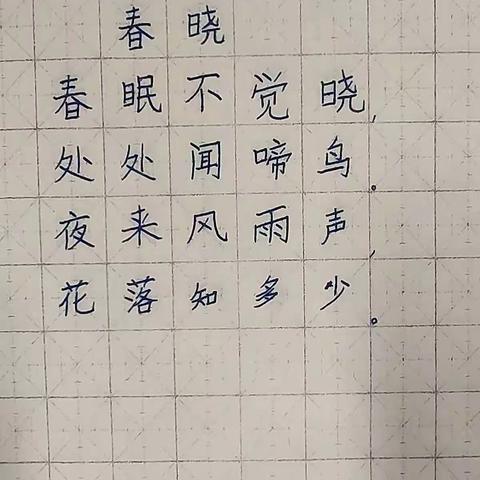 春晓
春眠不觉晓,
处处闻啼鸟。
夜来风雨声,
花落知多少。